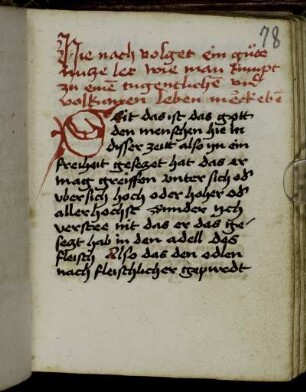 78
Hie nach volget ein gute
nucze ler wie man kumpt
zu eine tugentlichen vn
volkumen leben merk eben
Seit das ist das gott
den menschen hie in
disser zeitt also yn ein
freiheit gesetzet hat das er
mag greiffen vnter sich od
vbersich hoch oder hoher od
allerhochst Sunder ich
verstee nit das er das ge-
setzt hab in den adell des
fleisch Also das den odlen
nach fleischlicher gepurdt